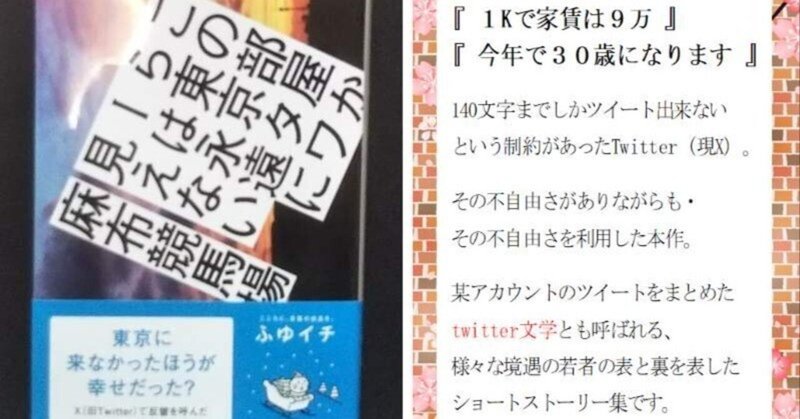 この部屋か
ら東京タワ
ーは永遠に
見えない
麻布競馬場
東京に
来なかったほうが
幸せだった?
X(旧Twitter)で反響を呼んだ
ふゆイチ
『 1Kで家賃は9万 』
『 今年で30歳になります 』
140文字までしかツイート出来ない
という制約があったTwitter(現X)。
その不自由さがありながらも・
その不自由さを利用した本作。
某アカウントのツイートをまとめた
twitter文学とも呼ばれる、
様々な境遇の若者の表と裏を表した
ショートストーリー集です。